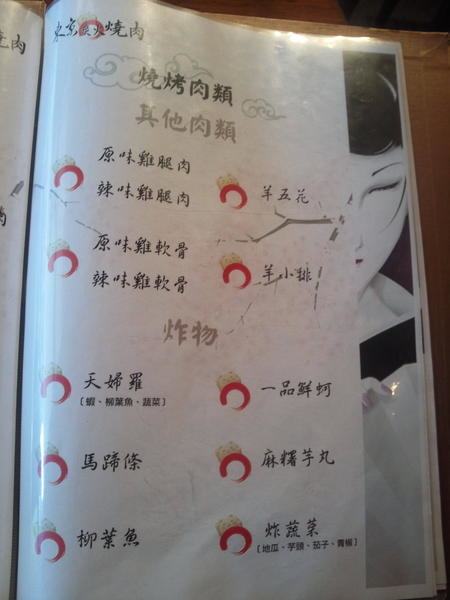 燒肉
燒烤肉類
其他肉類
原味雞腿肉
辣味雞腿肉
羊五花
原味雞軟骨
辣味雞軟骨
羊小排
炸物
天婦羅
〔蝦、柳葉魚、蔬菜〕
一品鮮蚵
馬蹄條
麻糬芋丸
柳葉魚
炸蔬菜
〔地瓜、芋頭、茄子、青椒〕